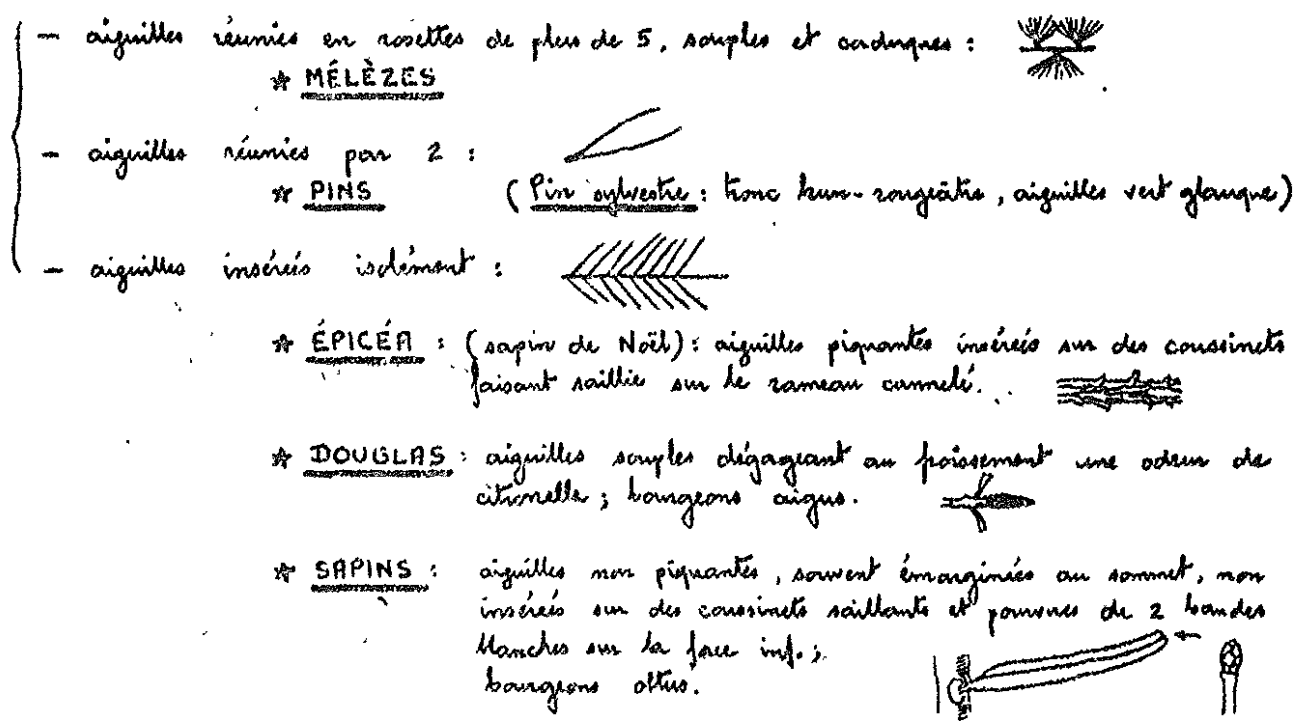 - aiguilles réunies en rosettes de plus de 5, souples et caduques :
☆ MÉLÈZES
- aiguilles réunies par 2 :
☆ PINS (Pin sylvestre : tronc brun-rougeâtre, aiguilles vert glauque)
- aiguilles insérées isolément :
☆ ÉPICÉA : (sapin de Noël) : aiguilles piquantes insérées sur des coussinets
faisant saillie sur le rameau cannelé.
☆ DOUGLAS : aiguilles souples dégageant au froissement une odeur de
citronelle ; bourgeons aigus.
☆ SAPINS : aiguilles non piquantes, souvent émarginées au sommet, non
insérées sur des coussinets saillants et pourvues de 2 bandes
blanches sur la face inf. ;
bourgeons obtus.